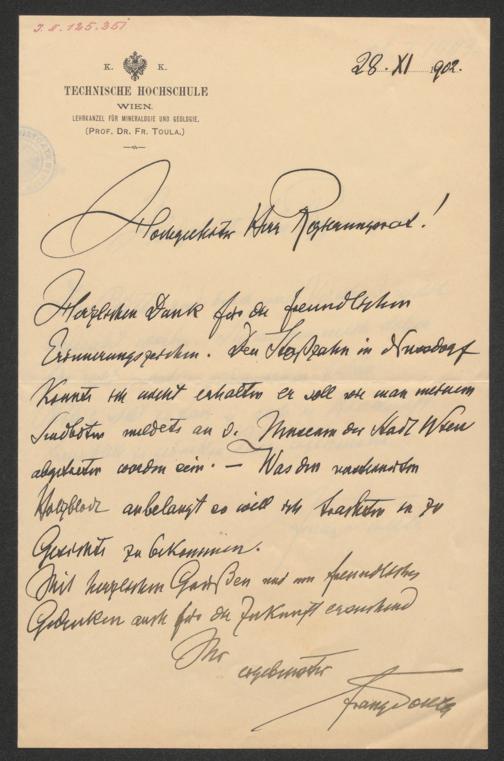 J.N.125.351
K. K.
TECHNISCHE HOCHSCHULE
WIEN.
LEHRKANZEL FÜR MINERALOGIE UND GEOLOGIE.
(PROF. DR. FR. TOULA.)
28. XI 1902.
Hochgeehrter Herr Regierungsrat!
Herzlichen Dank für die freundlichen
Erinnerungszeichen. Den Stoßzahn in Nussdorf
konnte ich nicht erhalten er soll wie man meinem
Sendboten meldete an d. Museum der Stadt Wien
abgetreten worden sein. — Was den
Holzblock anbelangt so will ich trachten ihn zu
Gesichte zu bekommen.
Mit herzlichen Grüßen und um freundliches
Gedenken auch für die Zukunft ersuchend
Ihr
ergebenster
Franz Toula